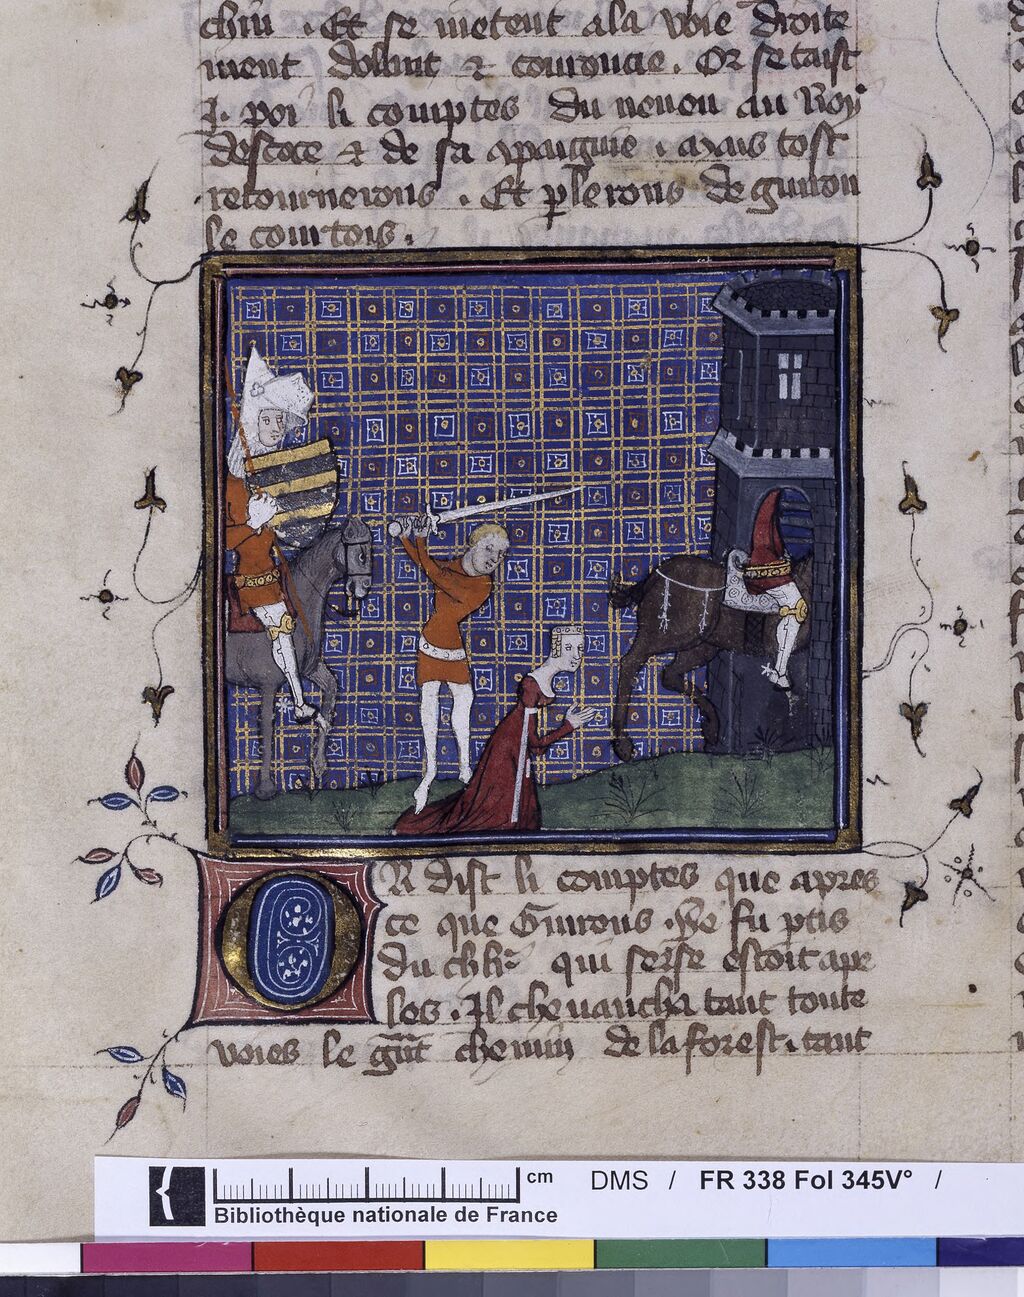 chiu . Et se metent a la voie droite
ment dolant & couroucie . Or se taist
j . poi li comptes du neueu au Roy
descoce & de sa 9paignie . mais tost
retournerons . Et plerons de guiron
le courtois .
OR dist li comptes que apres
ce que Guirons . se fu ptis
du chlr qui serse estoit ape
les . Il cheuaucha tant toute
voies le gnt chemin de la forest . tant
cm
DMS / FR 338 Fol 345V° /
Bibliothèque nationale de France